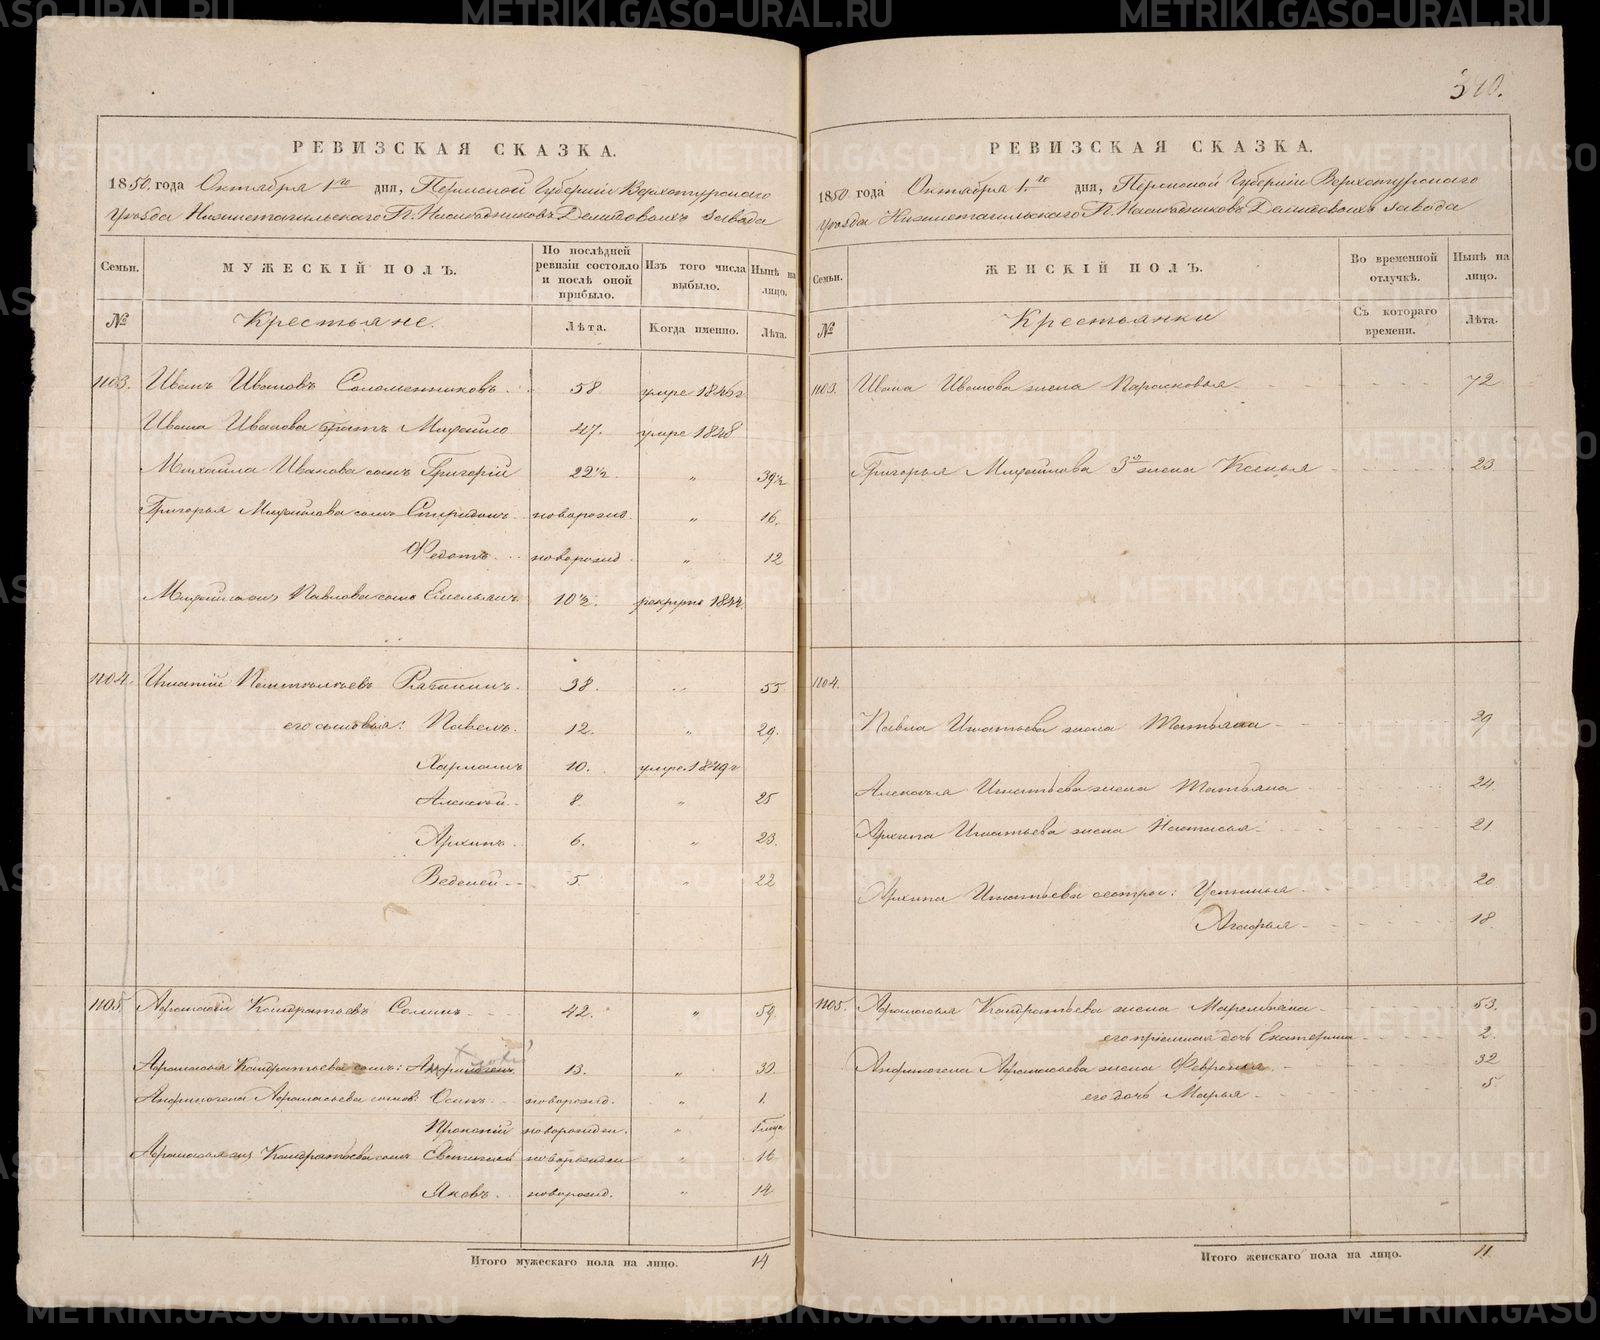 310.
РЕВИЗСКАЯ СКАЗКА.
1850. года Октября 1го дня, Пермской Губернии Верхотурскаго
уѣзда Нижнетагильскаго Гг. Наслѣдниковъ Демидовыхъ завода
Семьи. МУЖЕСКІЙ ПОЛЪ. По послѣдней ревизіи состояло и послѣ оной прибыло. Изъ того числа выбыло. Нынѣ на лицо.
№ Крестьяне. Лѣта. Когда именно. Лѣта.
1103. Иванъ Ивановъ Соломенниковъ 58 умре 1846 г
Ивана Иванова братъ Михайло 47. умре 1848
Михайла Иванова сынъ Григорій 22½ " 39½
Григорья Михайлова сынъ Спиридонъ новорожд. " 16.
Федотъ новорожд. " 12
Павлова сынъ Емельянъ 10½. рекрутъ 1844
1104. Игнатій Рябининъ 38. " 55
его сыновья: Павелъ. 12. " 29.
Харлампъ 10. умре 1849 г
Алексѣй 8 " 25
Архипъ 6. " 23.
Веденей 5. " 22
1105. Афанасій Кондратьевъ Соминъ 42. " 59.
Афанасья Кондратьева сынъ: Анфиногенъ 13. " 30.
Анфиногена Афанасьева сынов: Осипъ новорожд. " 1.
Прокопій новорожден. "
Кондратьева сынъ Евгеній новорожден " 16
Яковъ новорожд. " 14
Итого мужескаго пола на лицо. 14
РЕВИЗСКАЯ СКАЗКА.
1850 года Октября 1го дня, Пермской Губерніи Верхотурскаго
уѣзда Нижнетагильскаго Гг. Наслѣдниковъ Демидовыхъ завода
Семьи. ЖЕНСКІЙ ПОЛЪ. Во временной отлучкѣ. Нынѣ на лицо.
№ Крестьянки Съ котораго времени. Лѣта.
1103. Ивана Иванова жена Парасковья 72
Григорья Михайлова 3я жена Ксенья 23
1104.
Павла Игнатьева жена Татьяна 29
Алексѣя Игнатьева жена Татьяна 24
Архипа Игнатьева жена Настасья 21
Архипа Игнатьева сестры: Устинья 20
Агафья 18
1105. Афанасья Кондратьева жена Маремьяна 53.
его пріемная дочь Екатерина 2.
Анфиногена Афанасьева жена Февронья 32
его дочь Марья 5
Итого женскаго пола на лицо. 11
METRIKI.GASO-URAL.RU